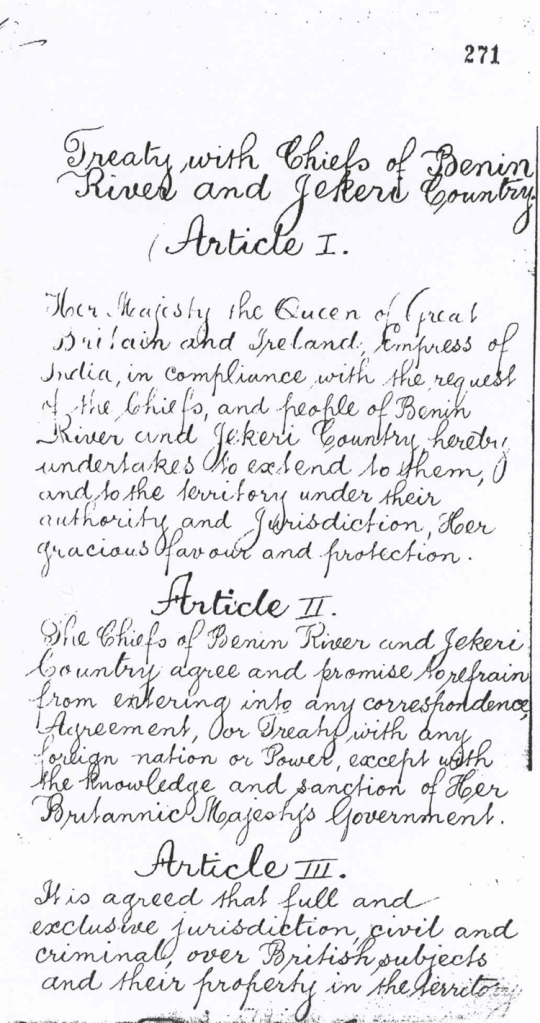 271
Treaty with Chiefs of Benin
River and Jekeri Country
Article I.
Her Majesty the Queen of Great
Britain and Ireland, Empress of
India, in compliance with the request
of the Chiefs, and people of Benin
River and Jekeri Country, hereby
undertakes to extend to them,
and to the territory under their
authority and Jurisdiction, Her
gracious favour and protection.
Article II.
The Chiefs of Benin River and Jekeri
Country agree and promise to refrain
from entering into any correspondence,
Agreement, or Treaty with any
foreign nation or Power, except with
the knowledge and sanction of Her
Britannic Majesty's Government.
Article III.
It is agreed that full and
exclusive jurisdiction, civil and
criminal, over British subjects
and their property in the territory